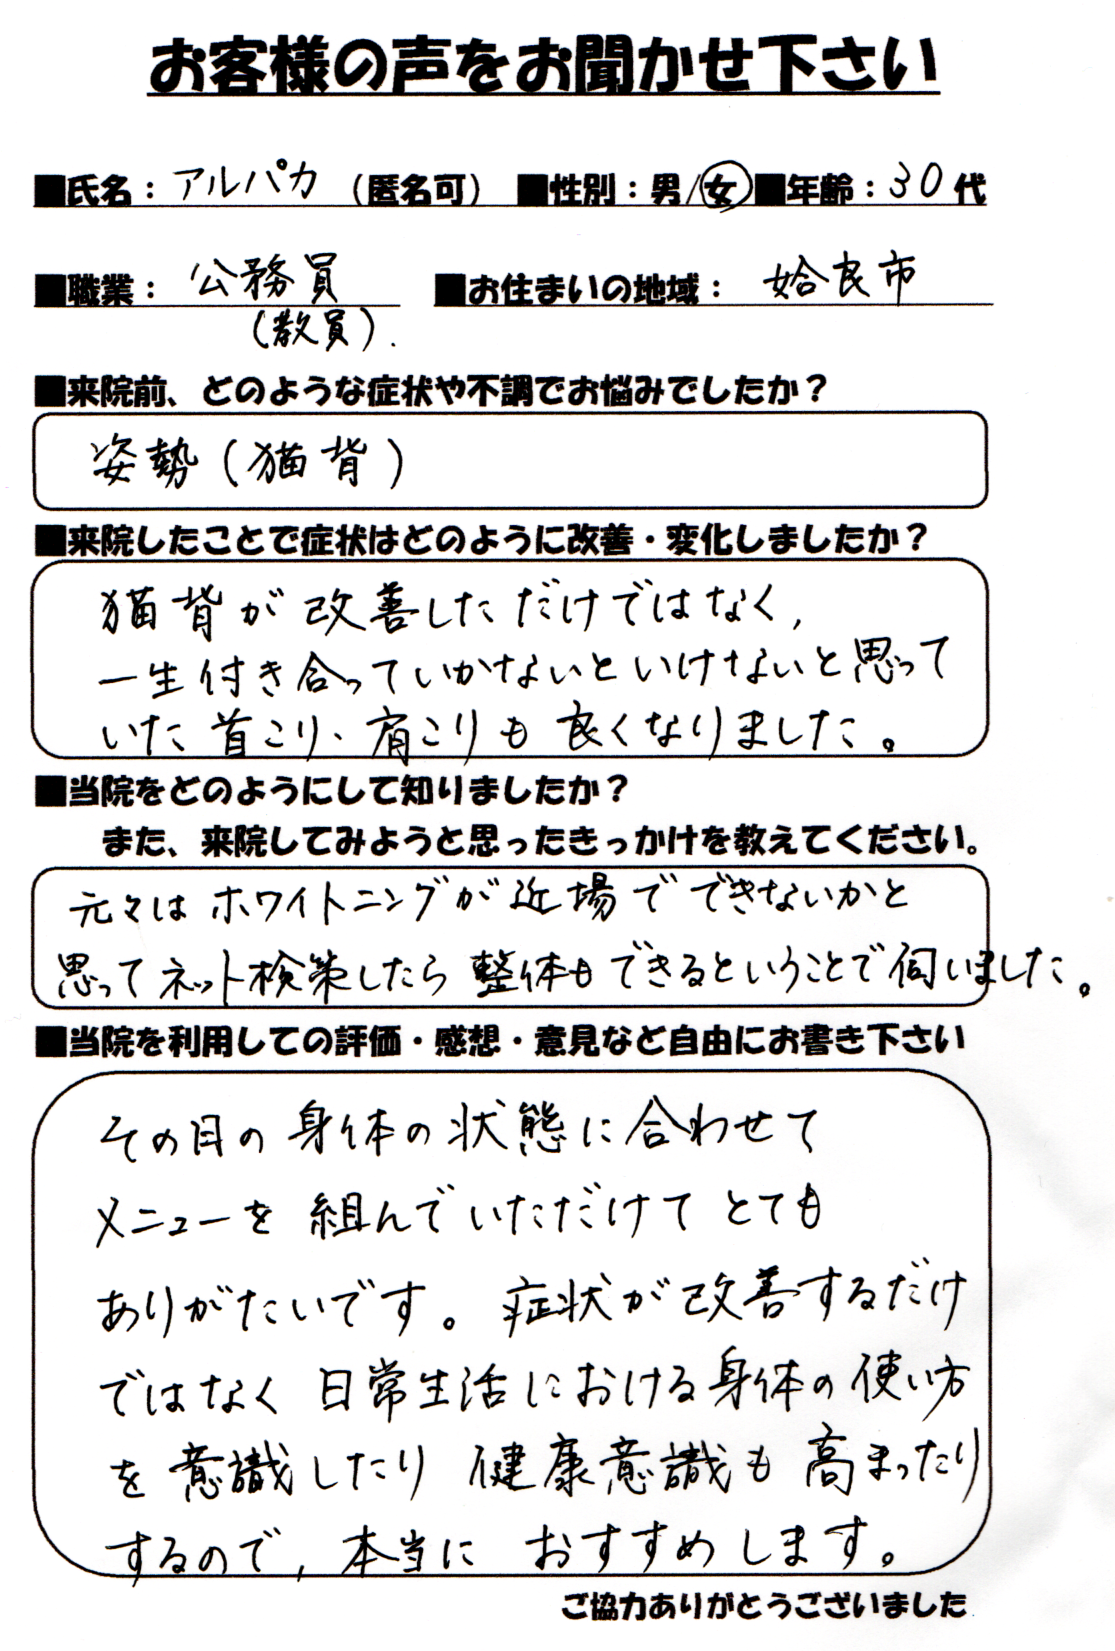 お客様の声をお聞かせ下さい
■氏名：アルパカ（匿名可） ■性別：男/女 ■年齢：30代
■職業：公務員 ■お住まいの地域：姶良市
（教員）.
■来院前、どのような症状や不調でお悩みでしたか？
姿勢（猫背）
■来院したことで症状はどのように改善・変化しましたか？
猫背が改善しただけではなく,
一生付き合っていかないといけないと思って
いた首こり、肩こりも良くなりました。
■当院をどのようにして知りましたか？
また、来院してみようと思ったきっかけを教えてください。
元々はホワイトニングが近場でできないかと
思ってネット検策したら整体もできるということで伺いました。
■当院を利用しての評価・感想・意見など自由にお書き下さい
その日の身体の状態に合わせて
メニューを組んでいただけてとても
ありがたいです。症状が改善するだけ
ではなく日常生活における身体の使い方
を意識したり健康意識も高まったり
するので,本当におすすめします。
ご協力ありがとうございました